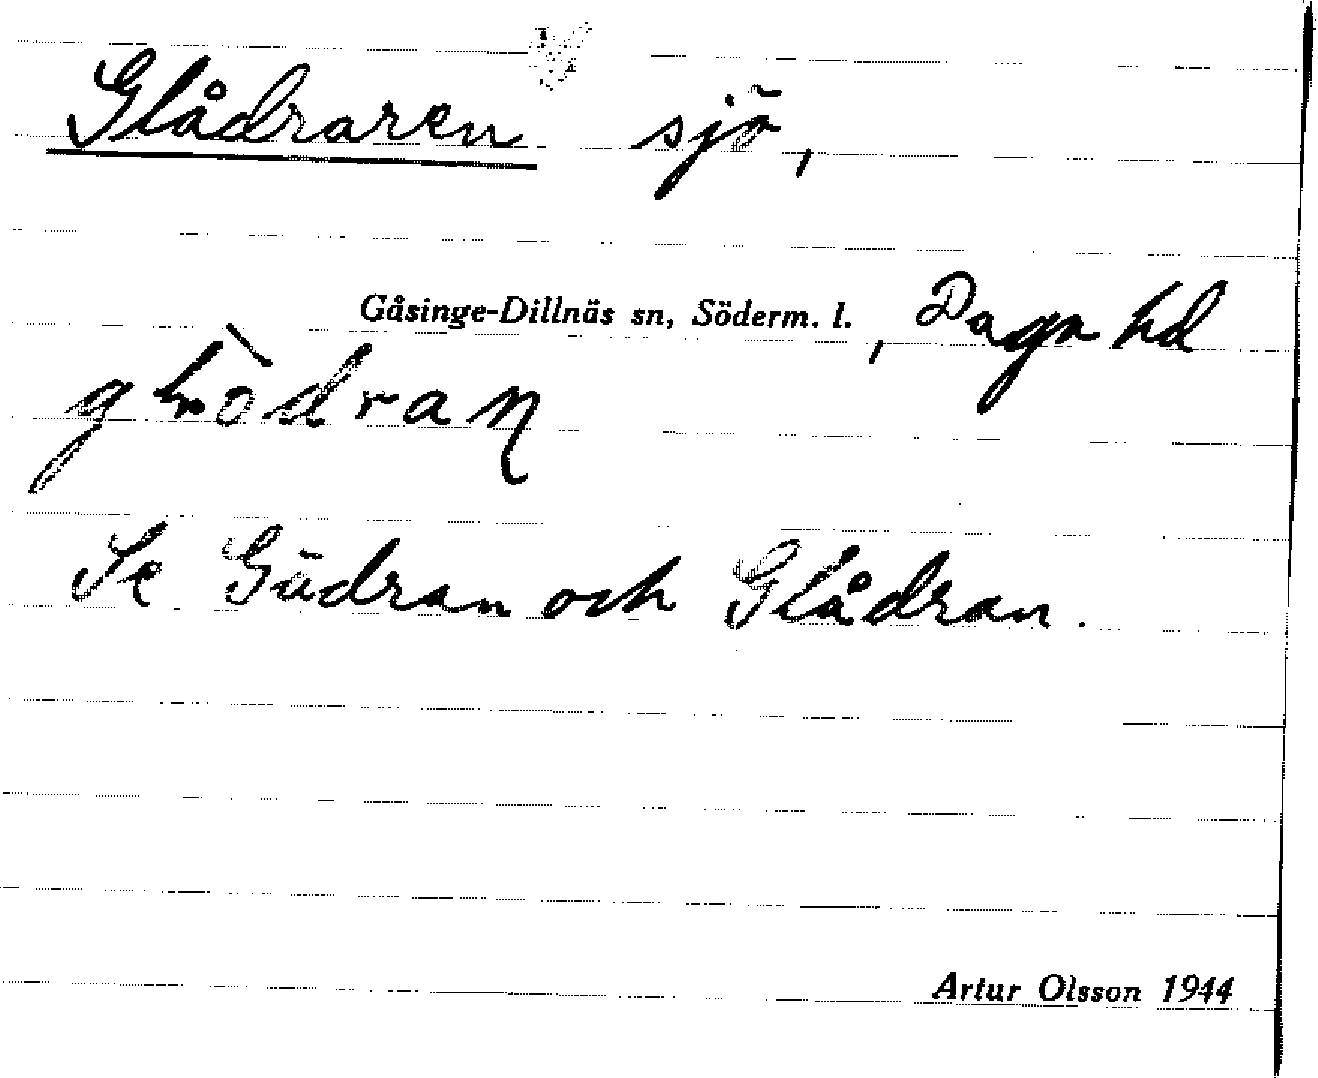 Glådraren sjö,
Gåsinge-Dillnäs sn, Söderm. l., Daga hd
Se Gådran och Glådran.
Artur Olsson 1944